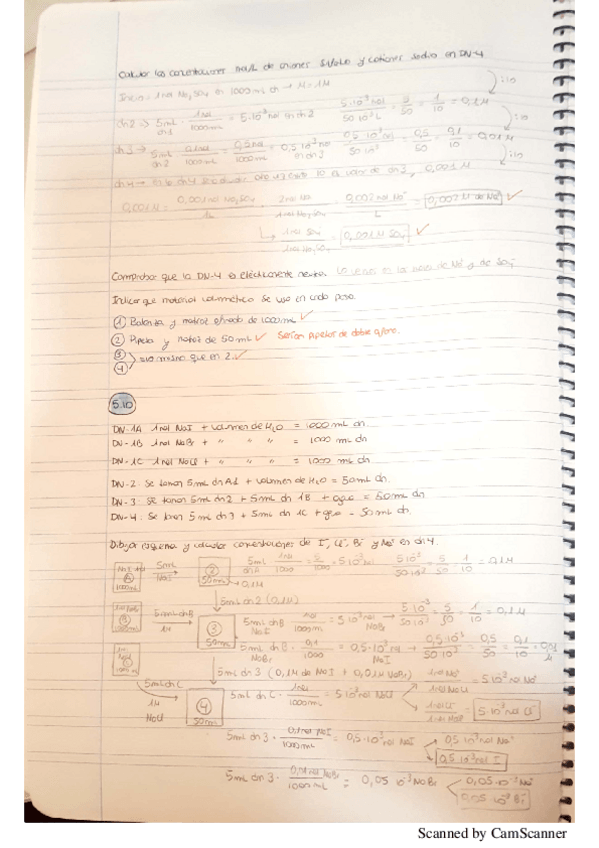 Calcular las concentraciones mol/L de aniones sulfato y cationes sodio en DN-4
Inicio = 1mol Na₂SO₄ en 1000 mL dn → M = 1M
:10
dn 2 → 5mL dn1 · 1mol / 1000mL = 5·10⁻³ mol en dn 2 5·10⁻³ mol / 50·10⁻³ L = 5/50 = 1/10 = 0,1M
:10
dn 3 → 5mL dn2 · 0,1mol / 1000mL = 0,5·10⁻³ mol en dn3 0,5·10⁻³ mol / 50·10⁻³ = 0,5/50 = 0,1/10 = 0,01M
:10
dn 4 → 0,001M
0,001M = 0,001mol Na₂SO₄ / 1L · 2mol Na / 1mol Na₂SO₄ = 0,002mol Na⁺ / L = 0,002M de Na⁺ ✓
↳ 1mol SO₄ / 1mol Na₂SO₄ = 0,001M SO₄ ✓
Comprobar que la DN-4 es eléctricamente neutra. Lo vemos en los moles de Na⁺ y de SO₄
Indicar que material volumétrico se usa en cada paso
① Balanza y matraz aforado de 1000mL ✓
② Pipeta y matraz de 50mL ✓ Serían pipetas de doble aforo.
③
④ > Lo mismo que en 2. ✓
5.10
DN-1A 1mol NaI + volumen de H₂O = 1000mL dn
DN-1B 1mol NaBr + " " " = 1000 mL dn
DN-1C 1mol NaCl + " " " = 1000 mL dn
DN-2 Se toman 5mL dn A1 + volumen de H₂O = 50mL dn.
DN-3 Se toman 5mL dn 2 + 5mL dn 1B + agua = 50mL dn
DN-4 Se toman 5mL dn 3 + 5mL dn 1C + agua = 50mL dn.
Dibujar esquema y calcular concentraciones de I⁻, Cl⁻, Br⁻ y Na⁺ en dn 4.
NaI A 1000mL 5mL NaI → ② 50mL → 0,1M 5mL dn A · 1mol / 1000 = 5·10⁻³mol 5·10⁻³ / 50·10⁻³ = 5/50 = 1/10 = 0,1M
5mL dn 2 (0,1M)
B 5mL dn B 1M → ③ 50mL 5mL dn B · 1mol / 1000mL = 5·10⁻³mol NaBr → 5·10⁻³ / 50·10⁻³ = 5/50 = 1/10 = 0,1M
0,1 / 1000 = 0,5·10⁻³ mol NaI → 0,5·10⁻³ / 50·10⁻³ = 0,5/50 = 0,1/10 = 0,01M
5mL dn 3 (0,1M de NaI + 0,01M NaBr)
5mL dn C 1M NaCl → ④ 50mL 5mL dn C · 1mol / 1000mL = 5·10⁻³mol NaCl 1mol Na⁺ / 1mol NaCl = 5·10⁻³ mol Na⁺
1mol Cl⁻ / 1mol NaCl = 5·10⁻³mol Cl⁻
5mL dn 3 · 0,1mol NaI / 1000mL = 0,5·10⁻³mol NaI 0,5·10⁻³mol Na⁺
0,5·10⁻³mol I⁻
5mL dn 3 · 0,01mol NaBr / 1000mL = 0,05·10⁻³ NaBr 0,05·10⁻³ Na⁺
0,05·10⁻³ Br⁻
Scanned by CamScanner